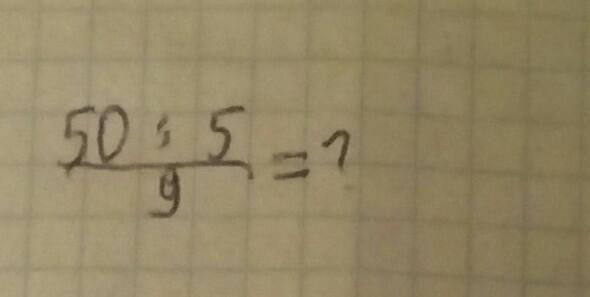 50 : 5
9
= ?